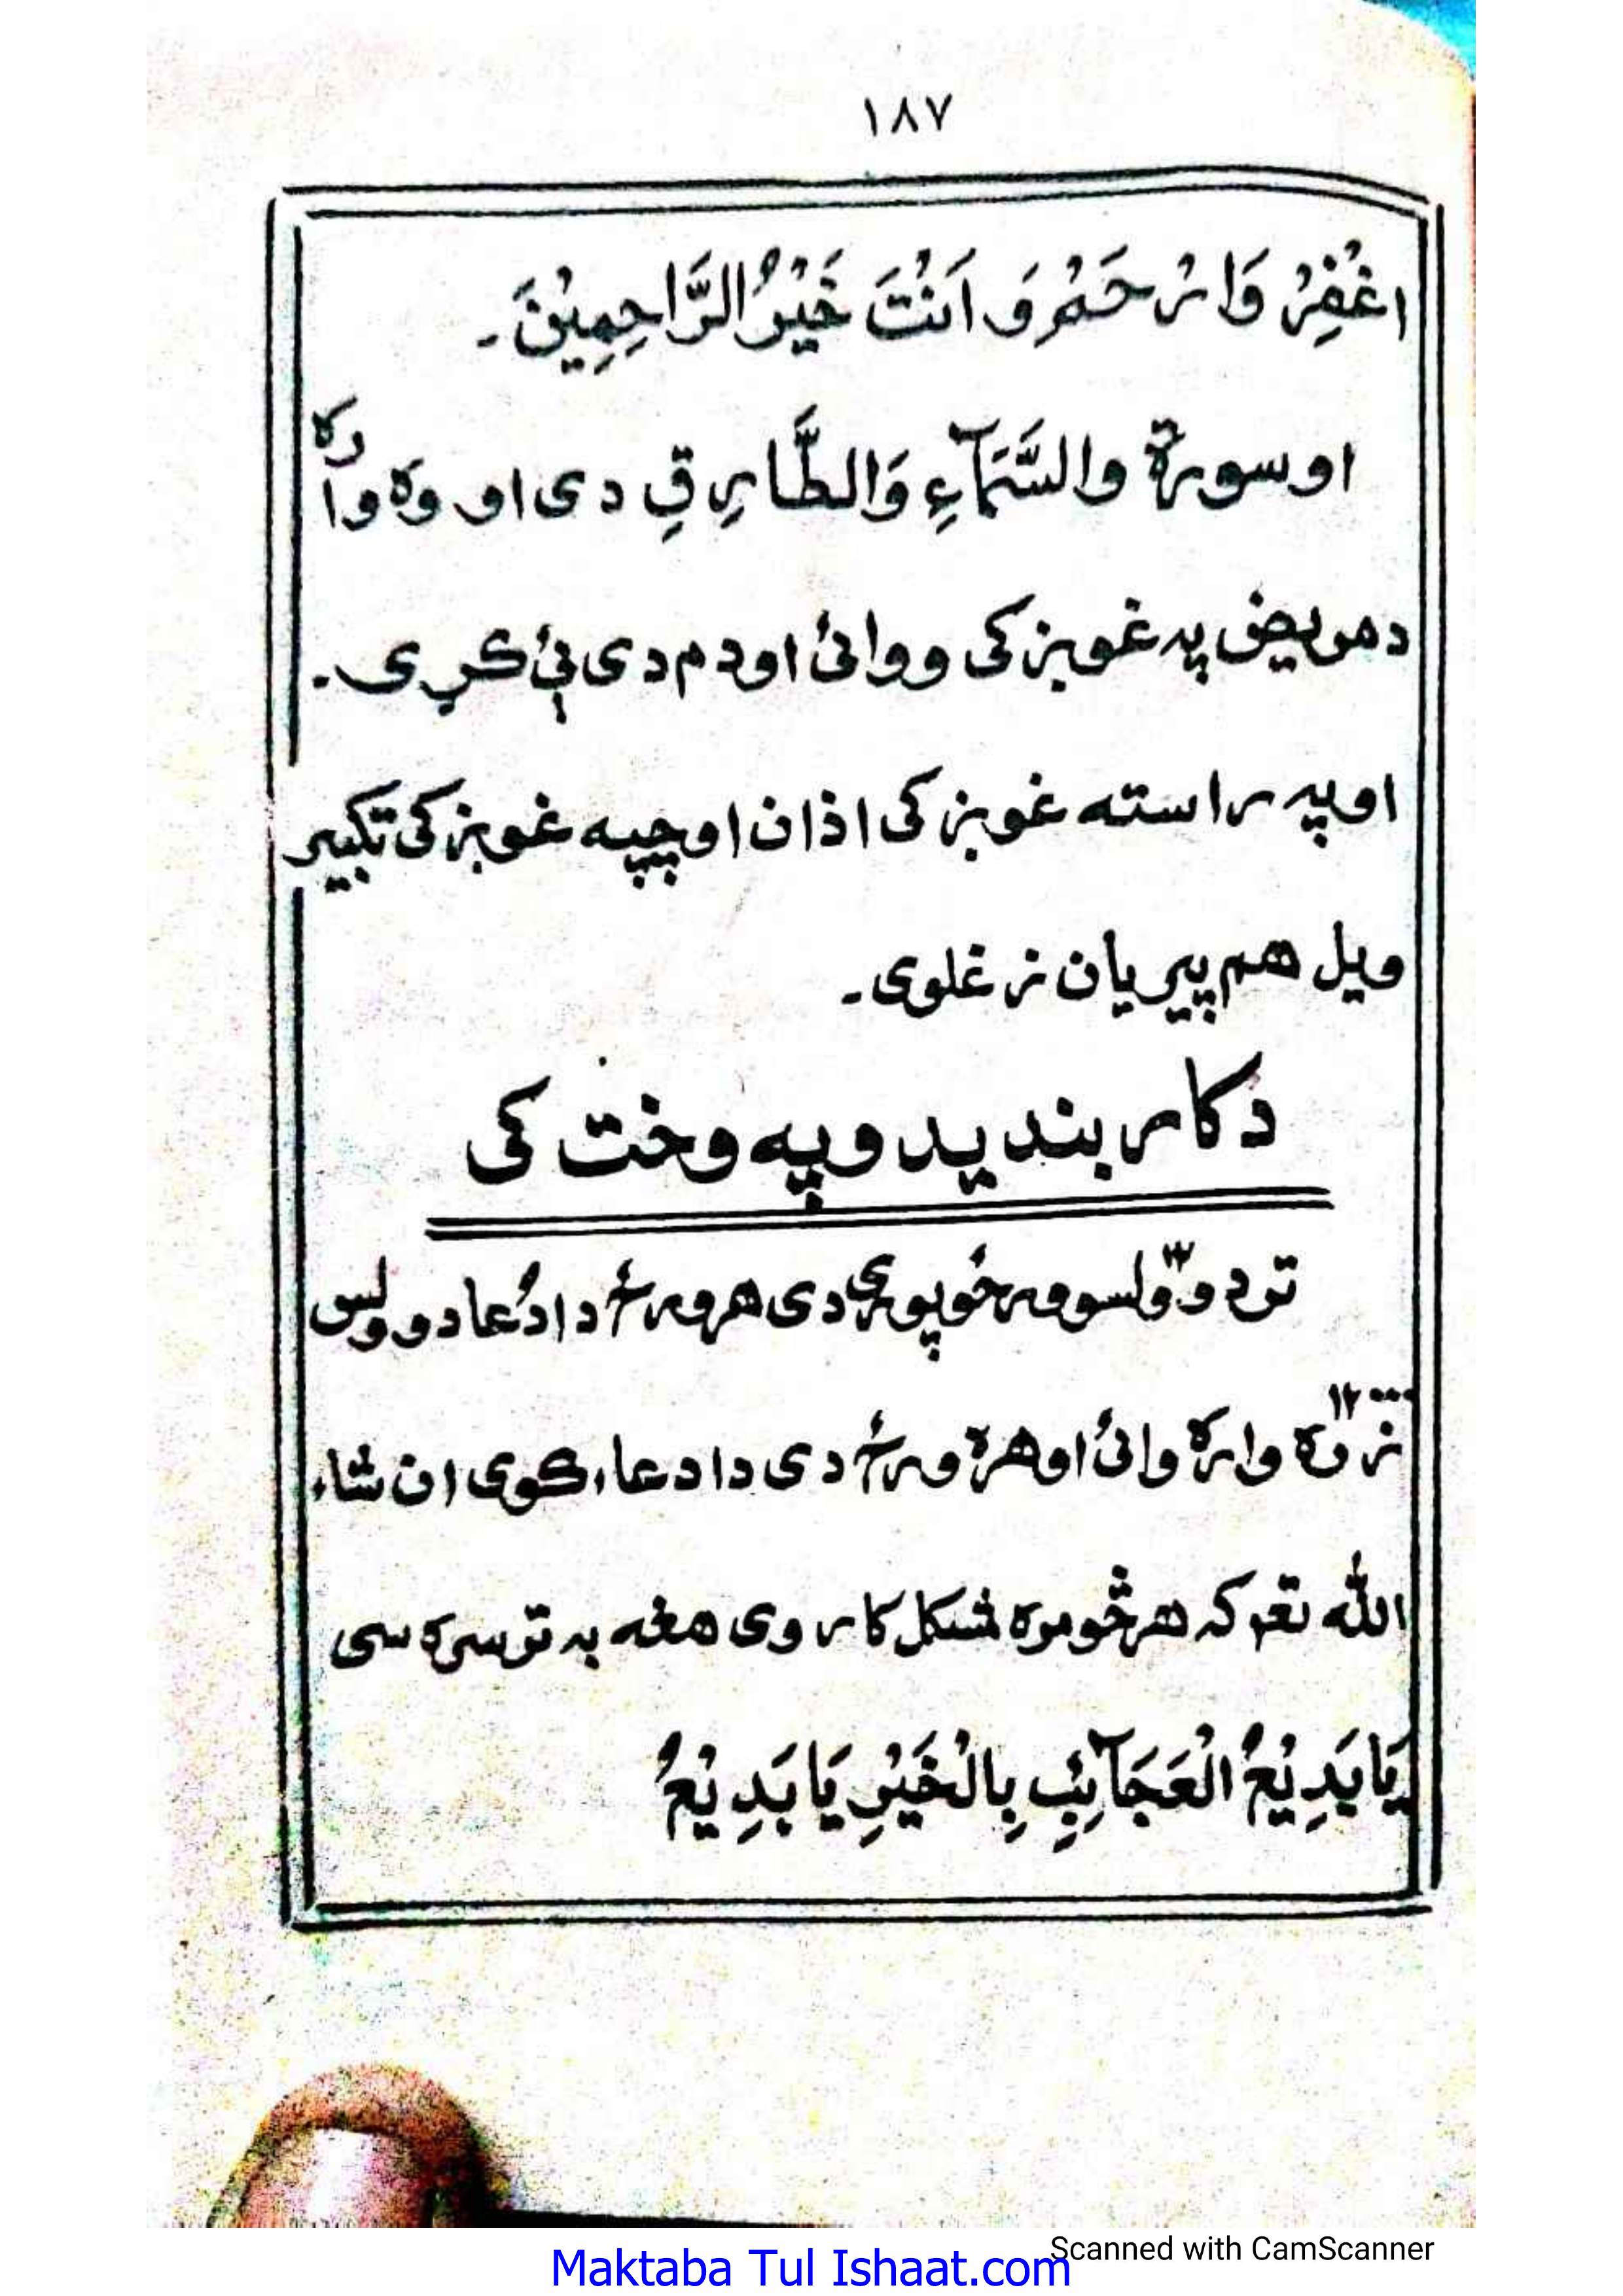 ١٨٧
اغْفِرْ وَارْحَمْ وَ اَنْتَ خَيْرُ الرَّاحِمِيْنَ ۔
او سورة والسَّمَآءِ وَالطَّارِقِ دی او وه واړه
د مريض په غوږ کی ووائی او دم دی ئې کړی ۔
او په راسته غوږ کی اذان او چپه غوږ کی تکبير
ويل هم پيريان زغلوی ۔
د کار بنديدو په وخت کی
تر دوولسو ورځو پوری دی هره ورځ دا دُعا دوولس
۱۲۰۰۰ زره واره وائی او هره ورځ دی دا دعاء کوی ان شاء
الله تعه که هر څومره مشکل کار وی هغه به تر سره سی
يَا بَدِيْعُ الْعَجَآئِبِ بِالْخَيْرِ يَا بَدِيْعُ
Scanned with CamScanner
Maktaba Tul Ishaat.com